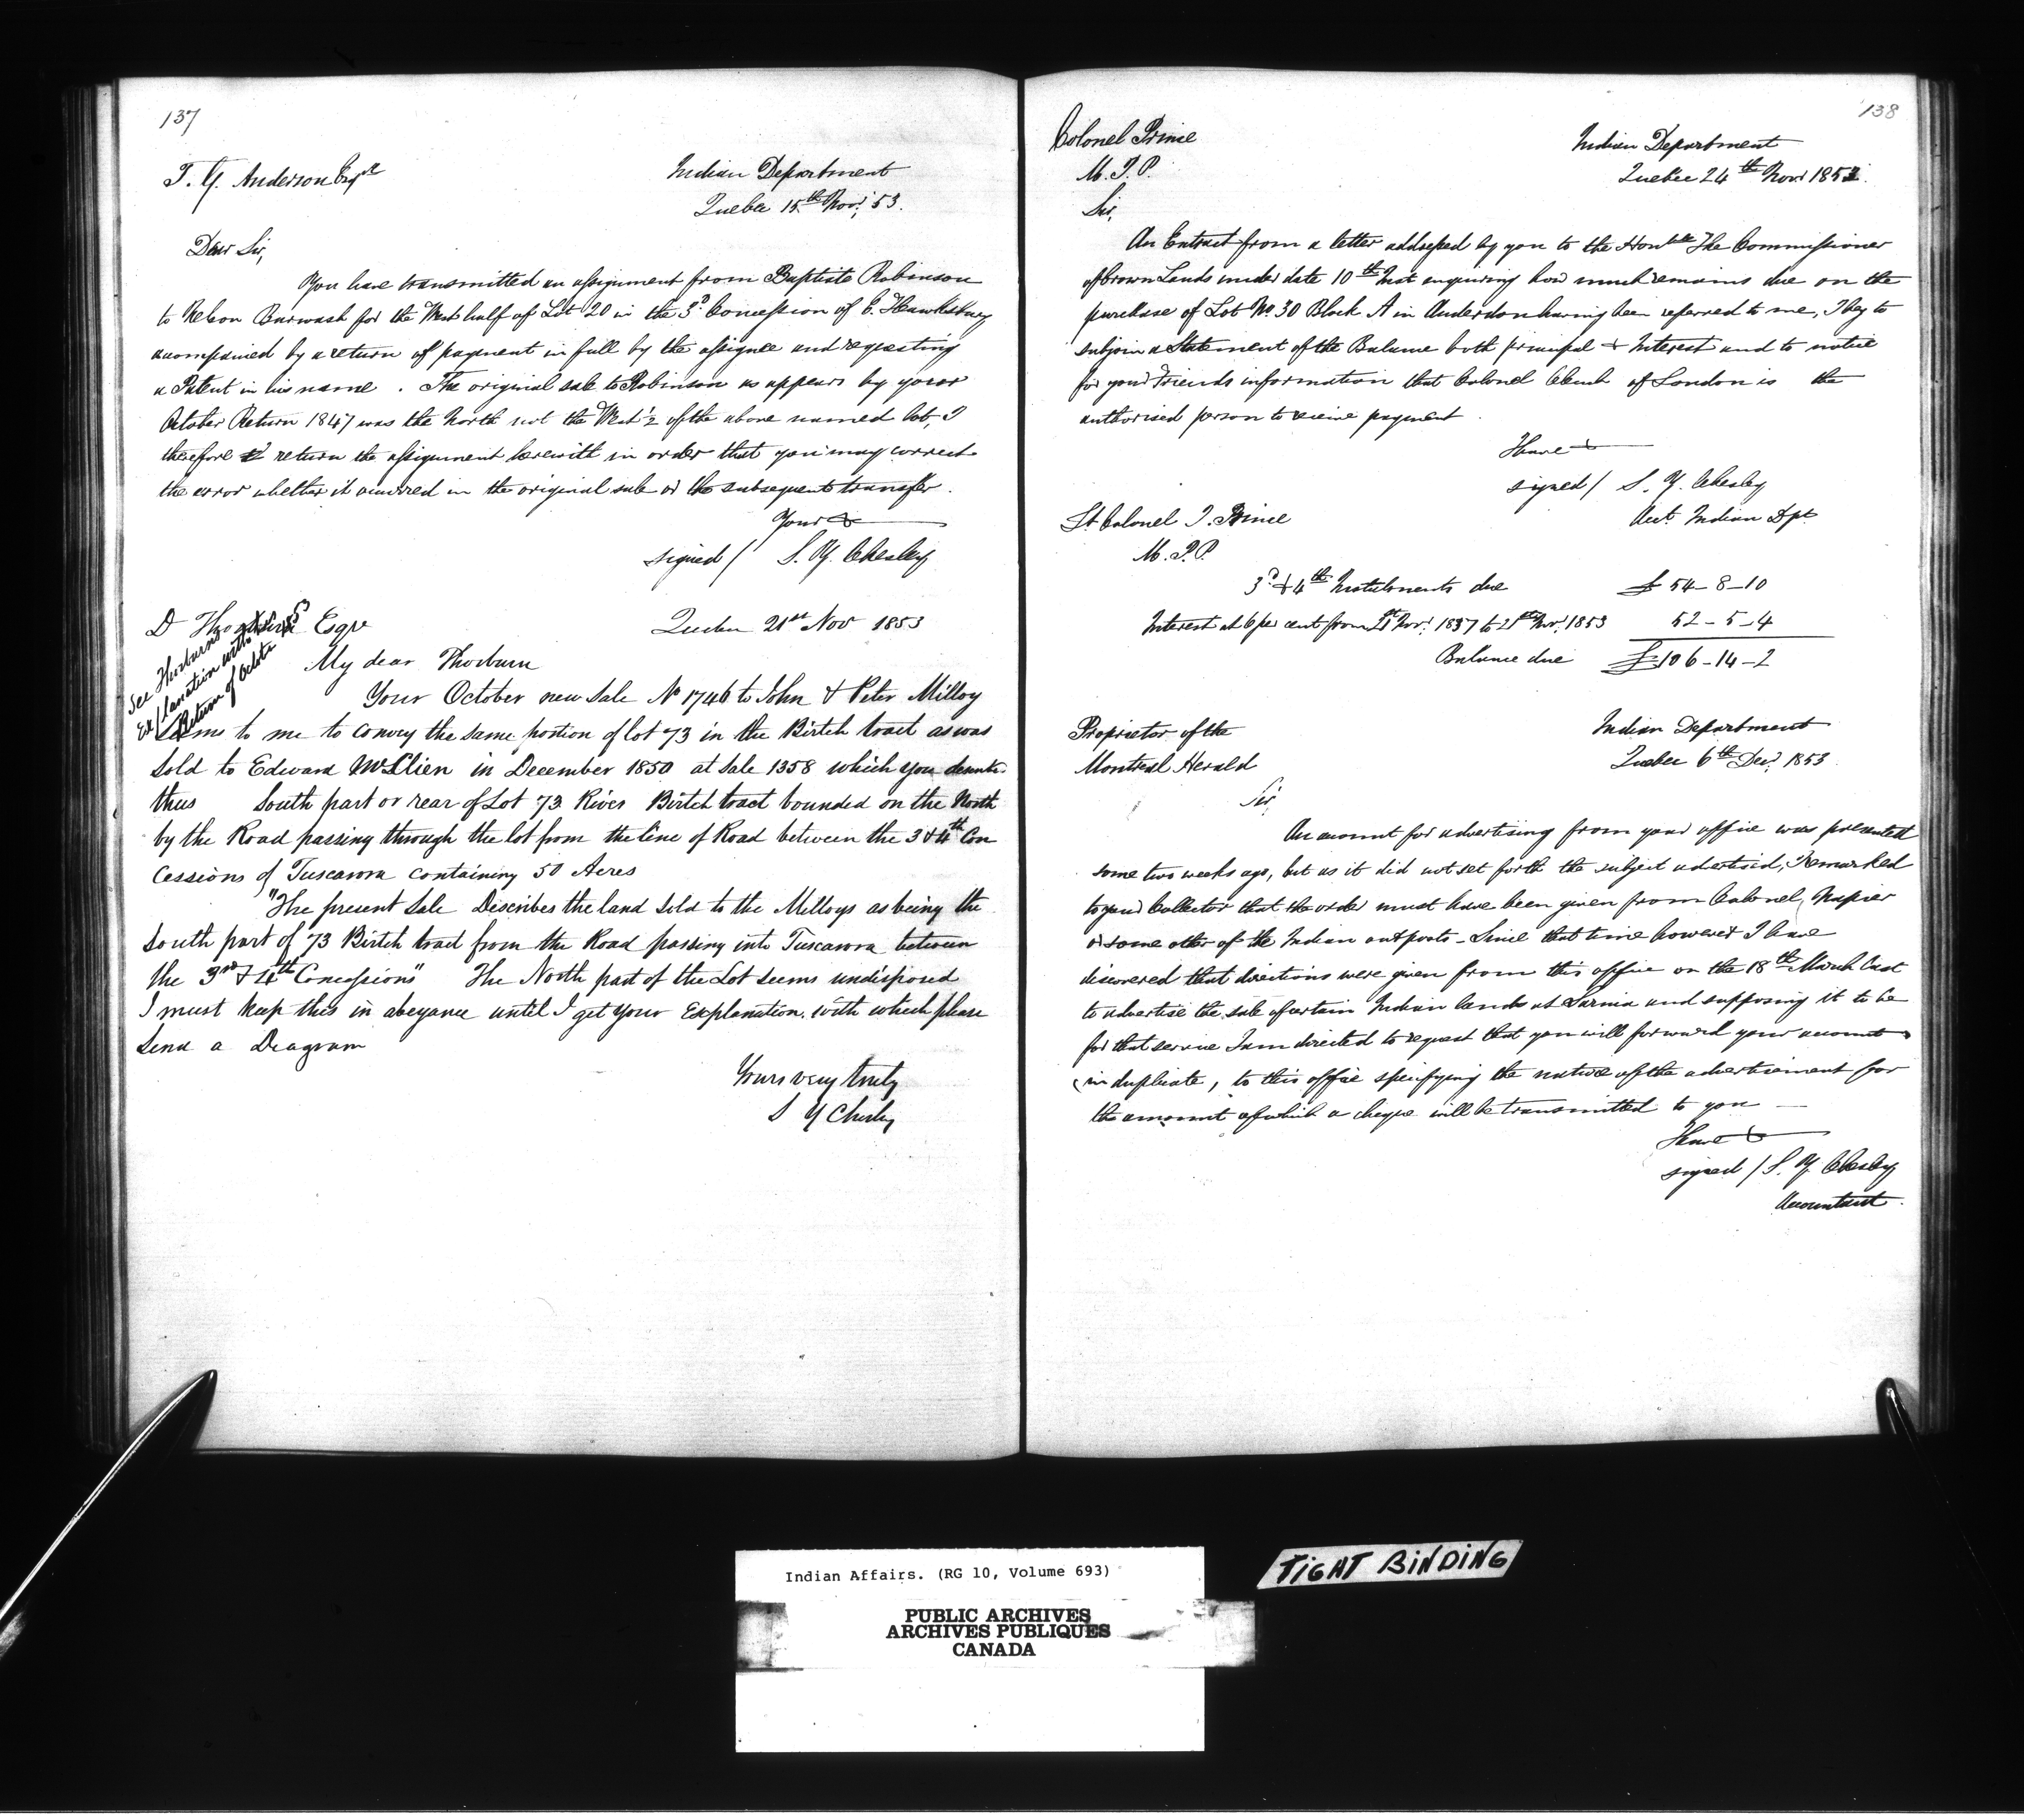 137
T. G. Anderson Esqre
Indian Department
Quebec 15th Novr. 53.
Dear Sir,
You have transmitted an assignment from Baptiste Robinson
to Burwash for the West half of Lot 20 in the 3d Concession of E. Hawksbury
accompanied by a return of payment in full by the assignee and requesting
a Patent in his name. The original sale to Robinson as appears by your
October Return 1847 was the North not the West ½ of the above named lot, I
therefore return the assignment herewith in order that you may correct
the error whether it occurred in the original sale or the subsequent transfer.
Yours &
signed / S. Y. Chesley
D Thorburn Esqre
Quebec 21st Nov 1853
See Thorburns
Explanation with
Return of Octr
My dear Thorburn
Your October new Sale No 1746 to John & Peter Milloy
Seems to me to convey the same portion of lot 73 in the Birtch tract as was
Sold to Edward in December 1850 at Sale 1358 which you
thus South part or rear of Lot 73 River Birtch tract bounded on the North
by the Road passing through the lot from the line of Road between the 3 & 4th Con
cessions of Tuscarora containing 50 Acres
"The present Sale Describes the land Sold to the Milloys as being the
South part of 73 Birtch tract from the Road passing into Tuscarora between
the 3rd & 4th Concessions" The North part of the Lot seems undisposed
I must keep this in abeyance until I get your Explanation. with which please
Send a Diagram
Yours very truly
S Y Chesley
138
Colonel Prince
M. P. P.
Indian Department
Quebec 24th Novr 1853.
Sir,
An Extract from a letter addressed by you to the Honble The Commissioner
of Crown Lands under date 10th Inst enquiring how much remains due on the
purchase of Lot No 30 Block A in Anderdon having been referred to me, I beg to
subjoin a Statement of the Balance both principal & Interest and to notice
for your Friends information that Colonel Clench of London is the
authorised person to receive payment.
Have &
signed / S. Y. Chesley
Acct. Indian Dpt
Lt Colonel J. Prince
M. P. P.
3d & 4th Instalments due £ 54-8-10
Interest at 6 per cent from 21st Novr. 1837 to 21st Novr. 1853 52-5-4
Balance due £106-14-2
Proprietor of the
Montreal Herald
Indian Department
Quebec 6th Decr. 1853.
Sir,
An account for advertising from your office was presented
some two weeks ago, but as it did not set forth the subject advertised, I remarked
to your Collector that the order must have been given from Colonel Napier
or some other of the Indian outposts - Since that time however I have
discovered that directions were given from this office on the 18th March last
to advertise the sale of certain Indian lands at Sarnia and supposing it to be
for that service I am directed to request that you will forward your account
in duplicate, to this office specifying the nature of the advertisement for
the amount of which a cheque will be transmitted to you -
Have &
signed / S. Y. Chesley
Accountant.
Indian Affairs. (RG 10, Volume 693)
PUBLIC ARCHIVES
ARCHIVES PUBLIQUES
CANADA
TIGHT BINDING